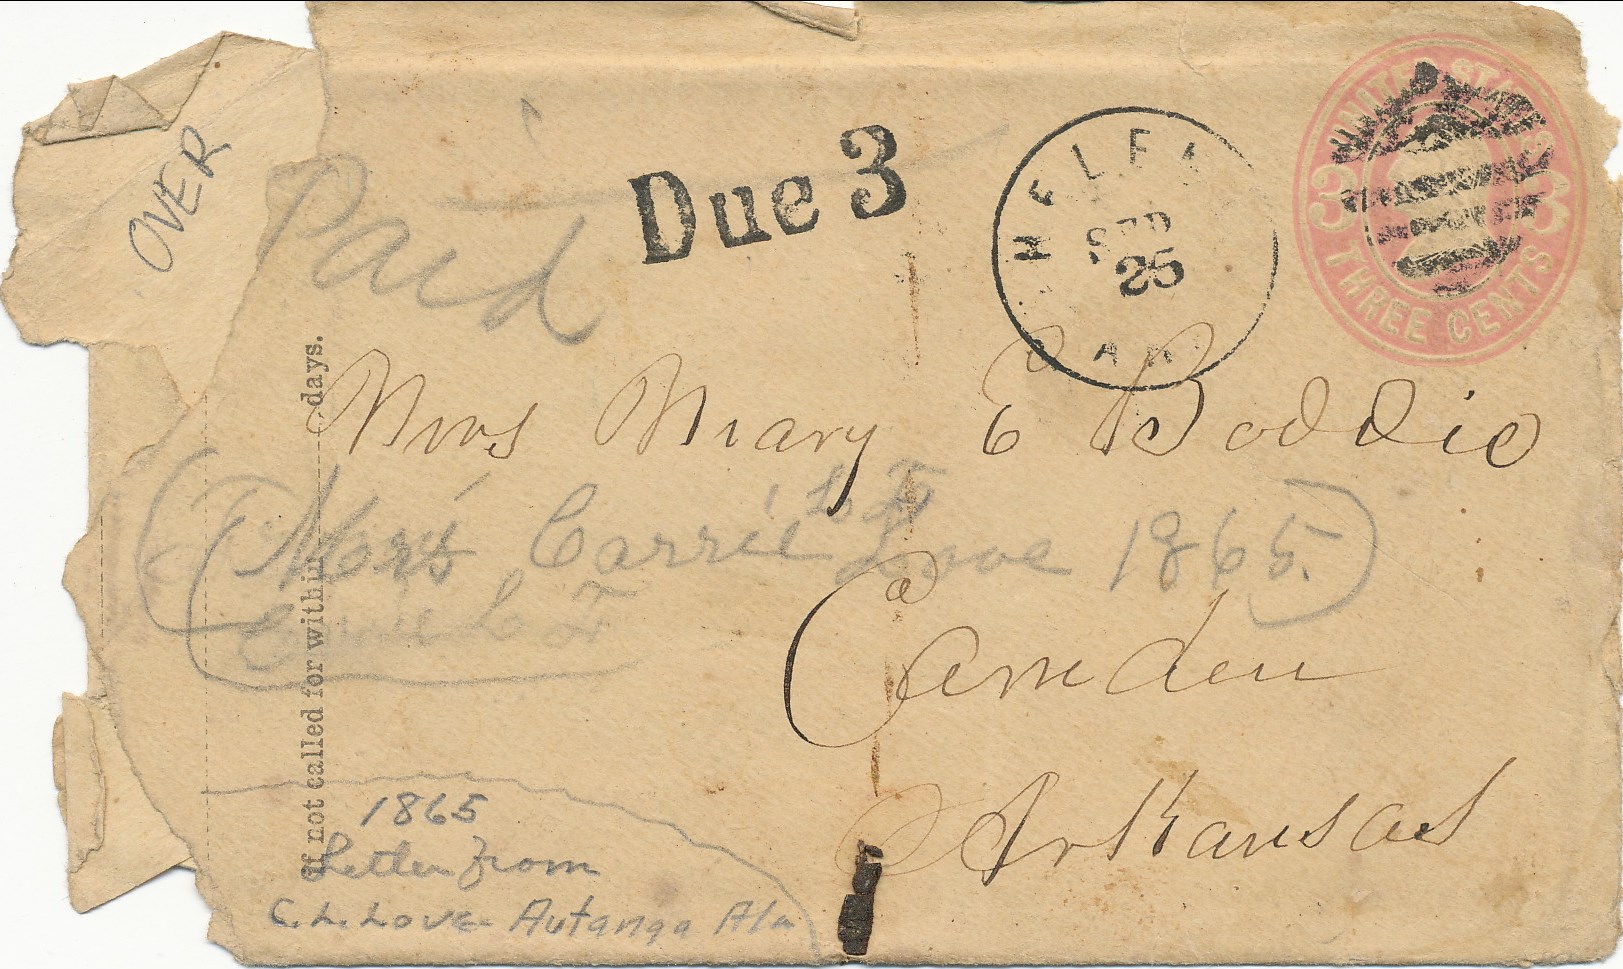 OVER
Paid
Due 3
HELENA
SEP
25
ARK
UNITED STATES
3 3
THREE CENTS
If not called for within days.
Mrs Mary E Boddie
Mrs Carrie Love 1865.
Camden
Arkansas
1865
Letter from
C. L. Love - Autanga Ala